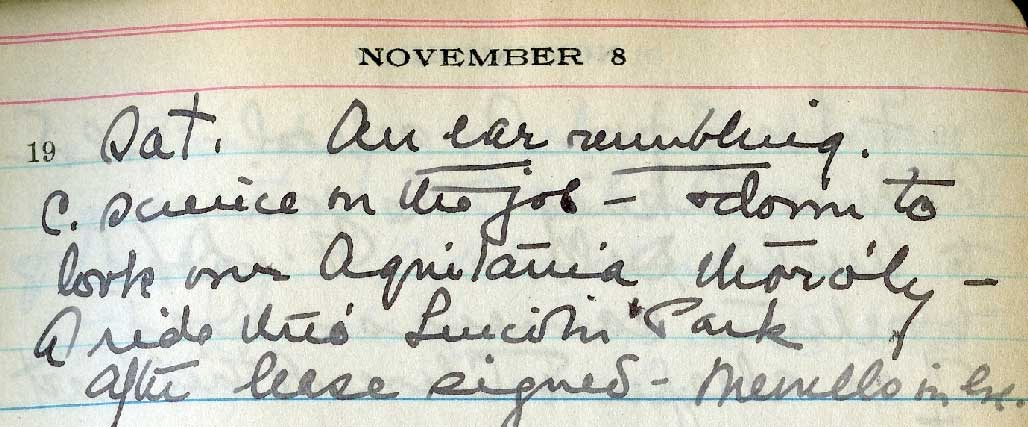 NOVEMBER 8
19 Sat. An ear rumbling.
C. science on the job – + down to
look over Aquitania thoro'ly –
A ride thro' Lincoln Park
after lease signed – in